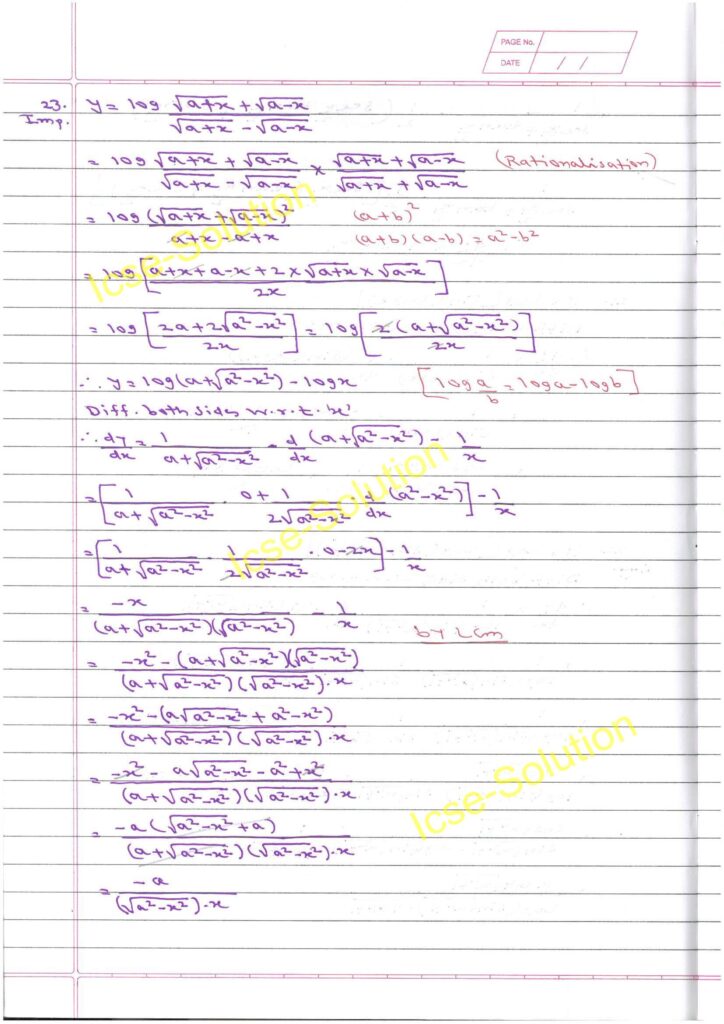 PAGE No.
DATE / /
23. y = log (√(a+x) + √(a-x)) / (√(a+x) - √(a-x))
Imp.
= log (√(a+x) + √(a-x)) / (√(a+x) - √(a-x)) × (√(a+x) + √(a-x)) / (√(a+x) + √(a-x)) (Rationalisation)
= log (√(a+x) + √(a-x))² / (a+x-a+x) (a+b)²
(a+b)(a-b) = a²-b²
= log [(a+x+a-x+2×√(a+x)×√(a-x)) / 2x]
= log [(2a+2√(a²-x²)) / 2x] = log [2(a+√(a²-x²)) / 2x]
∴ y = log(a+√(a²-x²)) - logx [log a/b = loga - logb]
Diff. both sides w.r.t. 'x'
∴ dy/dx = 1/(a+√(a²-x²)) · d/dx (a+√(a²-x²)) - 1/x
= [1/(a+√(a²-x²)) · 0 + 1/(2√(a²-x²)) · d/dx (a²-x²)] - 1/x
= [1/(a+√(a²-x²)) · 1/(2√(a²-x²)) · 0-2x] - 1/x
= -x / ((a+√(a²-x²))(√(a²-x²))) - 1/x
by Lcm
= (-x² - (a+√(a²-x²))(√(a²-x²))) / ((a+√(a²-x²))(√(a²-x²))·x)
= (-x² - (a√(a²-x²) + a²-x²)) / ((a+√(a²-x²))(√(a²-x²))·x)
= (-x² - a√(a²-x²) - a² + x²) / ((a+√(a²-x²))(√(a²-x²))·x)
= -a(√(a²-x²) + a) / ((a+√(a²-x²))(√(a²-x²))·x)
= -a / ((√(a²-x²))·x)
Icse-Solution
Icse-Solution
Icse-Solution